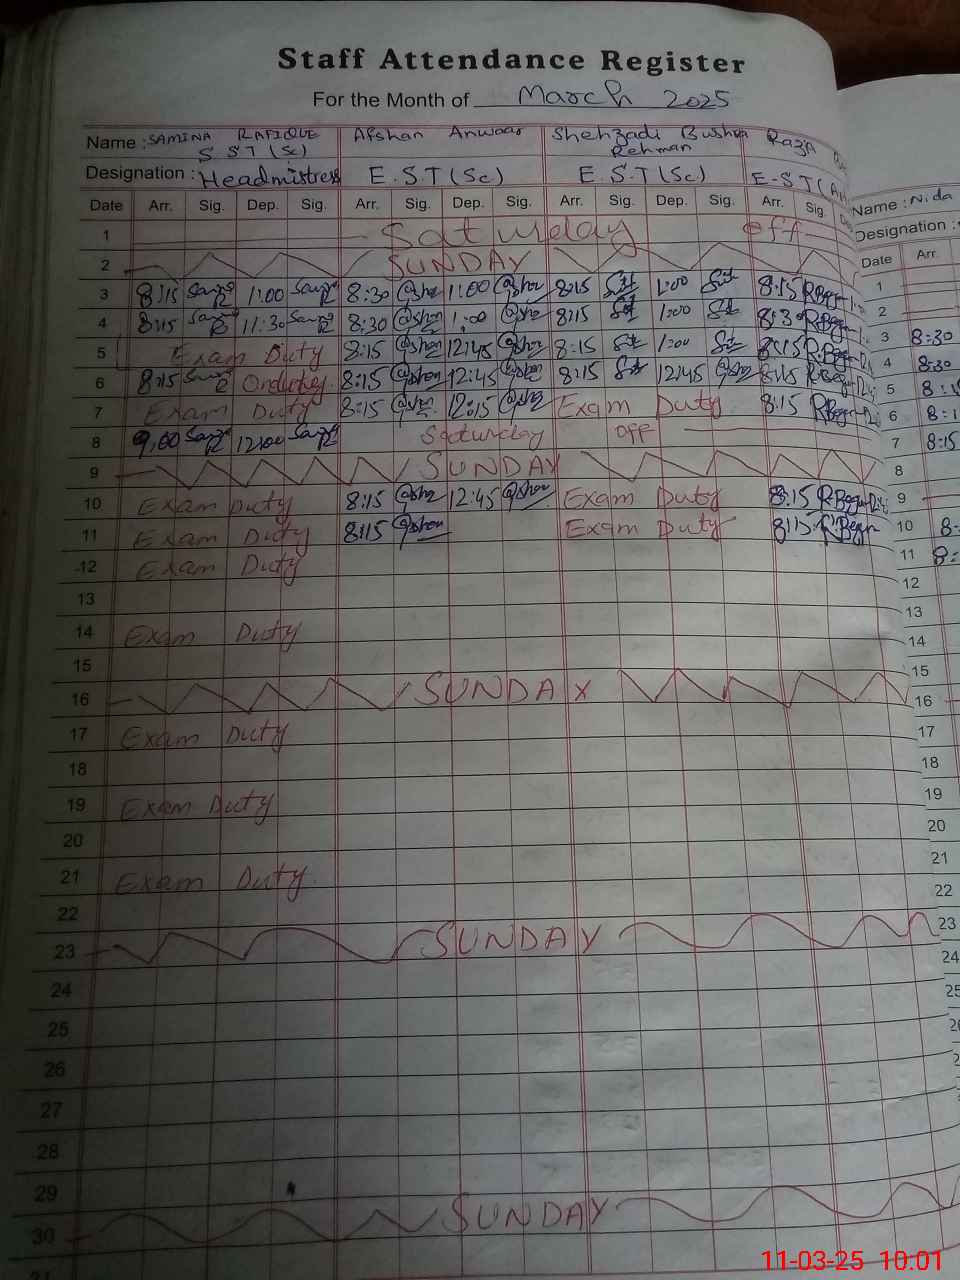 Staff Attendance Register
For the Month of March 2025
Name : SAMINA RAFIQUE Afshan Anwaar Shehzadi Bushra Raza
S S T (Sc) Rehman
Designation : Headmistress E.S.T (Sc) E.S.T (Sc) E-S.T (A
Name : Nida
Designation :
Date Arr. Sig. Dep. Sig. Arr. Sig. Dep. Sig. Arr. Sig. Dep. Sig. Arr. Sig. Dep
Date Arr.
1 Saturday off
2 SUNDAY
3 8:15 1:00 8:30 1:00 8:15 1:00 8:15
4 8:15 11:30 8:30 1:00 8:15 1:00 8:30
5 Exam Duty 8:15 12:45 8:15 1:00 8:15
6 8:15 On duty 8:15 12:45 8:15 12:45 8:15
7 Exam Duty 8:15 12:15 Exam Duty 8:15
8 9,00 12:00 Saturday off
9 SUNDAY
10 Exam Duty 8:15 12:45 Exam Duty 8:15
11 Exam Duty 8:15 Exam Duty 8:15
12 Exam Duty
13
14 Exam Duty
15
16 SUNDAX
17 Exam Duty
18
19 Exam Duty
20
21 Exam Duty
22
23 SUNDAY
24
25
26
27
28
29
30 SUNDAY
1
2
3 8:30
4 8:30
5 8:1
6 8:1
7 8:15
8
9
10 8:
11 8:
12
13
14
15
16
17
18
19
20
21
22
23
24
25
11-03-25 10:01